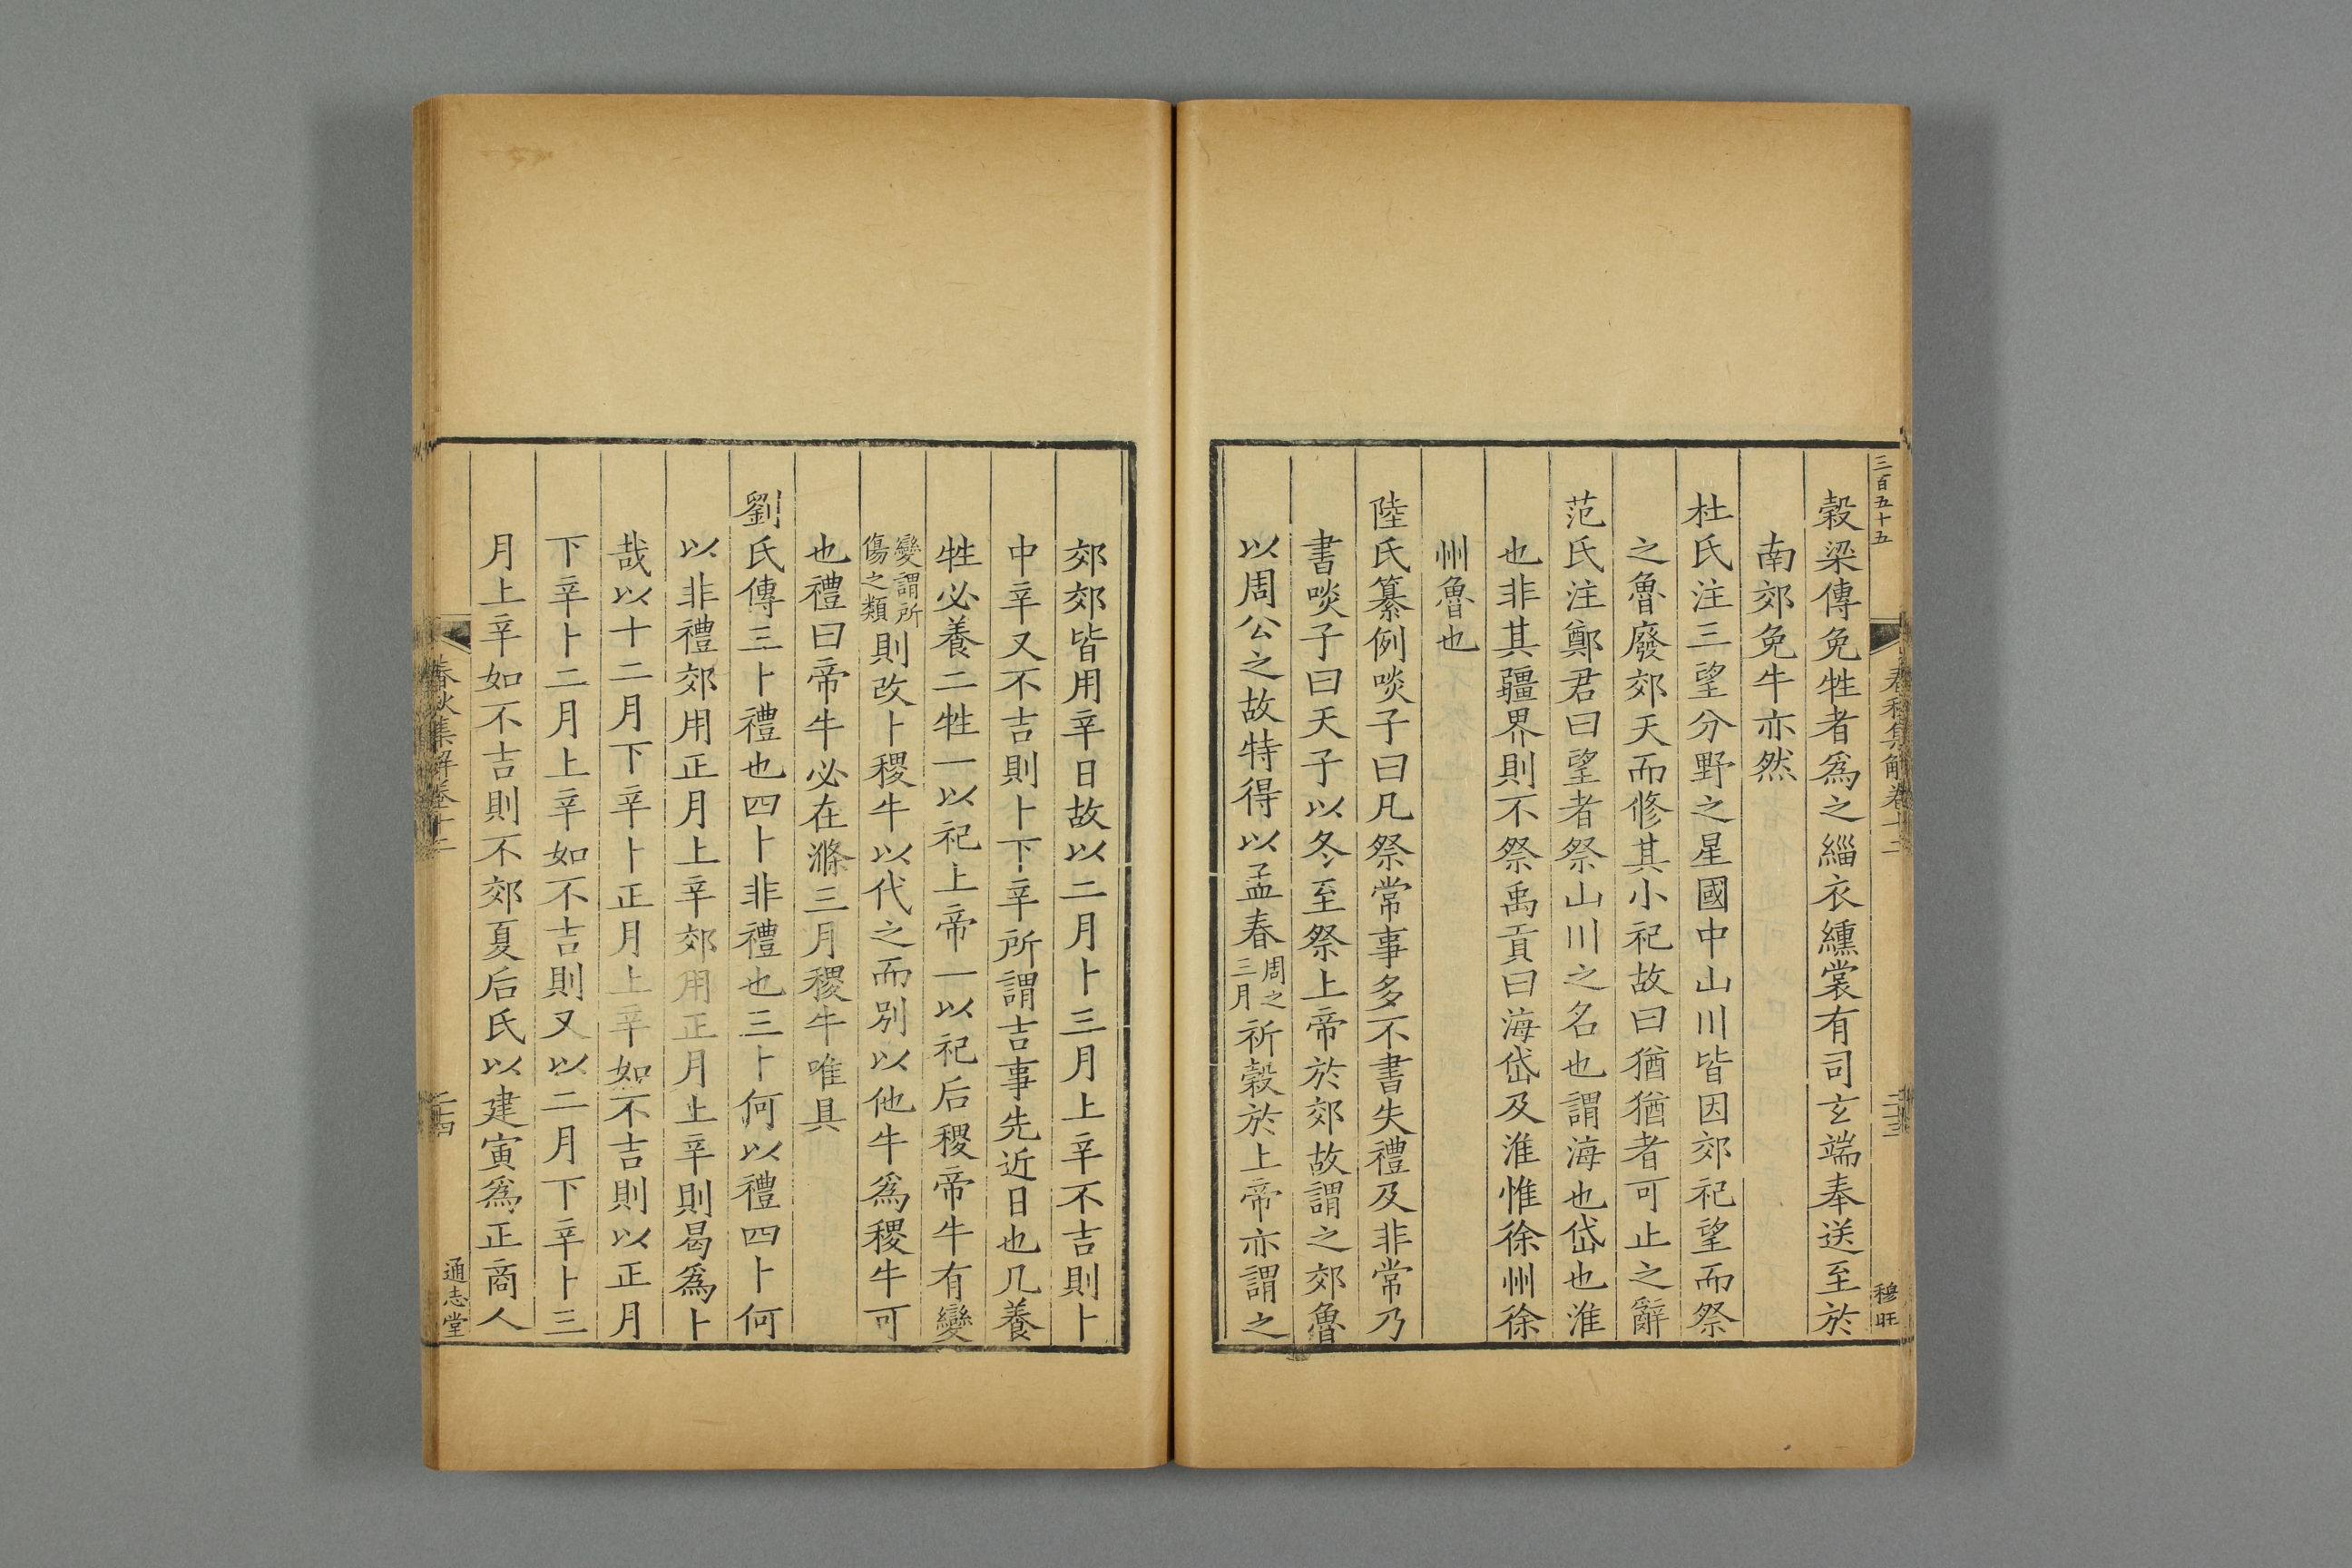 三百五十五
春秋集解卷十二
二十三
穆旺
穀梁傳免牲者爲之緇衣纁裳有司玄端奉送至於
南郊免牛亦然
杜氏注三望分野之星國中山川皆因郊祀望而祭
之魯廢郊天而修其小祀故曰猶猶者可止之辭
范氏注鄭君曰望者祭山川之名也謂海也岱也淮
也非其疆界則不祭禹貢曰海岱及淮惟徐州徐
州魯也
陸氏纂例啖子曰凡祭常事多不書失禮及非常乃
書啖子曰天子以冬至祭上帝於郊故謂之郊魯
以周公之故特得以孟春周之三月祈穀於上帝亦謂之
郊郊皆用辛日故以二月卜三月上辛不吉則卜
中辛又不吉則卜下辛所謂吉事先近日也凡養
牲必養二牲一以祀上帝一以祀后稷帝牛有變
變謂所傷之類則改卜稷牛以代之而別以他牛爲稷牛可
也禮曰帝牛必在滌三月稷牛唯具
劉氏傳三卜禮也四卜非禮也三卜何以禮四卜何
以非禮郊用正月上辛郊用正月上辛則曷爲卜
哉以十二月下辛卜正月上辛如不吉則以正月
下辛卜二月上辛如不吉則又以二月下辛卜三
月上辛如不吉則不郊夏后氏以建寅爲正商人
春秋集解卷十二
二十四
通志堂